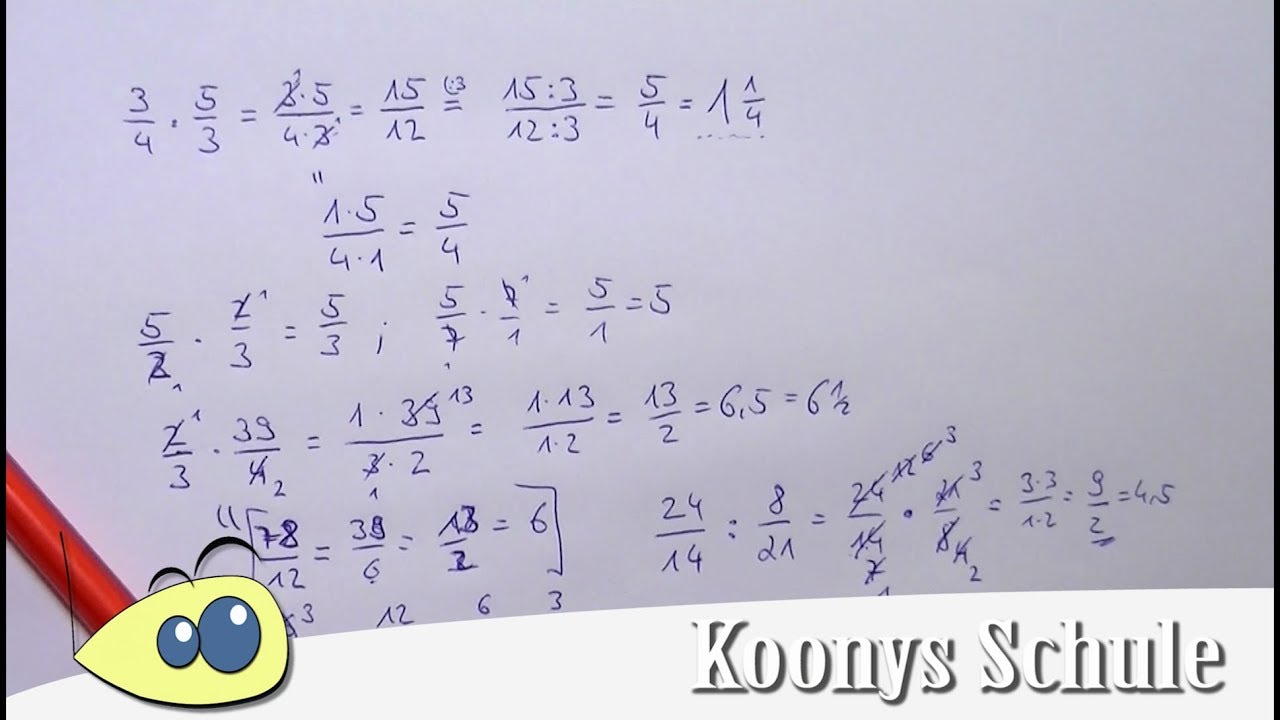 3/4 · 5/3 = 3·5/4·3 = 15/12 (:3 = 15:3/12:3 = 5/4 = 1 1/4
" 1·5/4·1 = 5/4
5/2 1 · 2 1/3 = 5/3 ; 5/7 1 · 7 1/1 = 5/1 = 5
2 1/3 · 39/4 2 = 1·39 13/3 1·2 = 1·13/1·2 = 13/2 = 6,5 = 6 1/2
" [78/12 = 39/6 = 13/2 = 6] 24/14 : 8/21 = 24 12 6 3/14 7 1 · 21 3/8 4 2 = 3·3/1·2 = 9/2 = 4,5
3 12 6 3
Koonys Schule